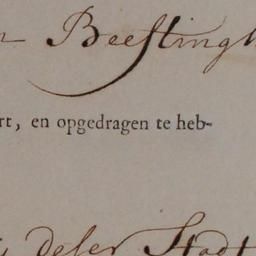 n Beeftingh
rt, en opgedragen te heb-
s deser Stadt